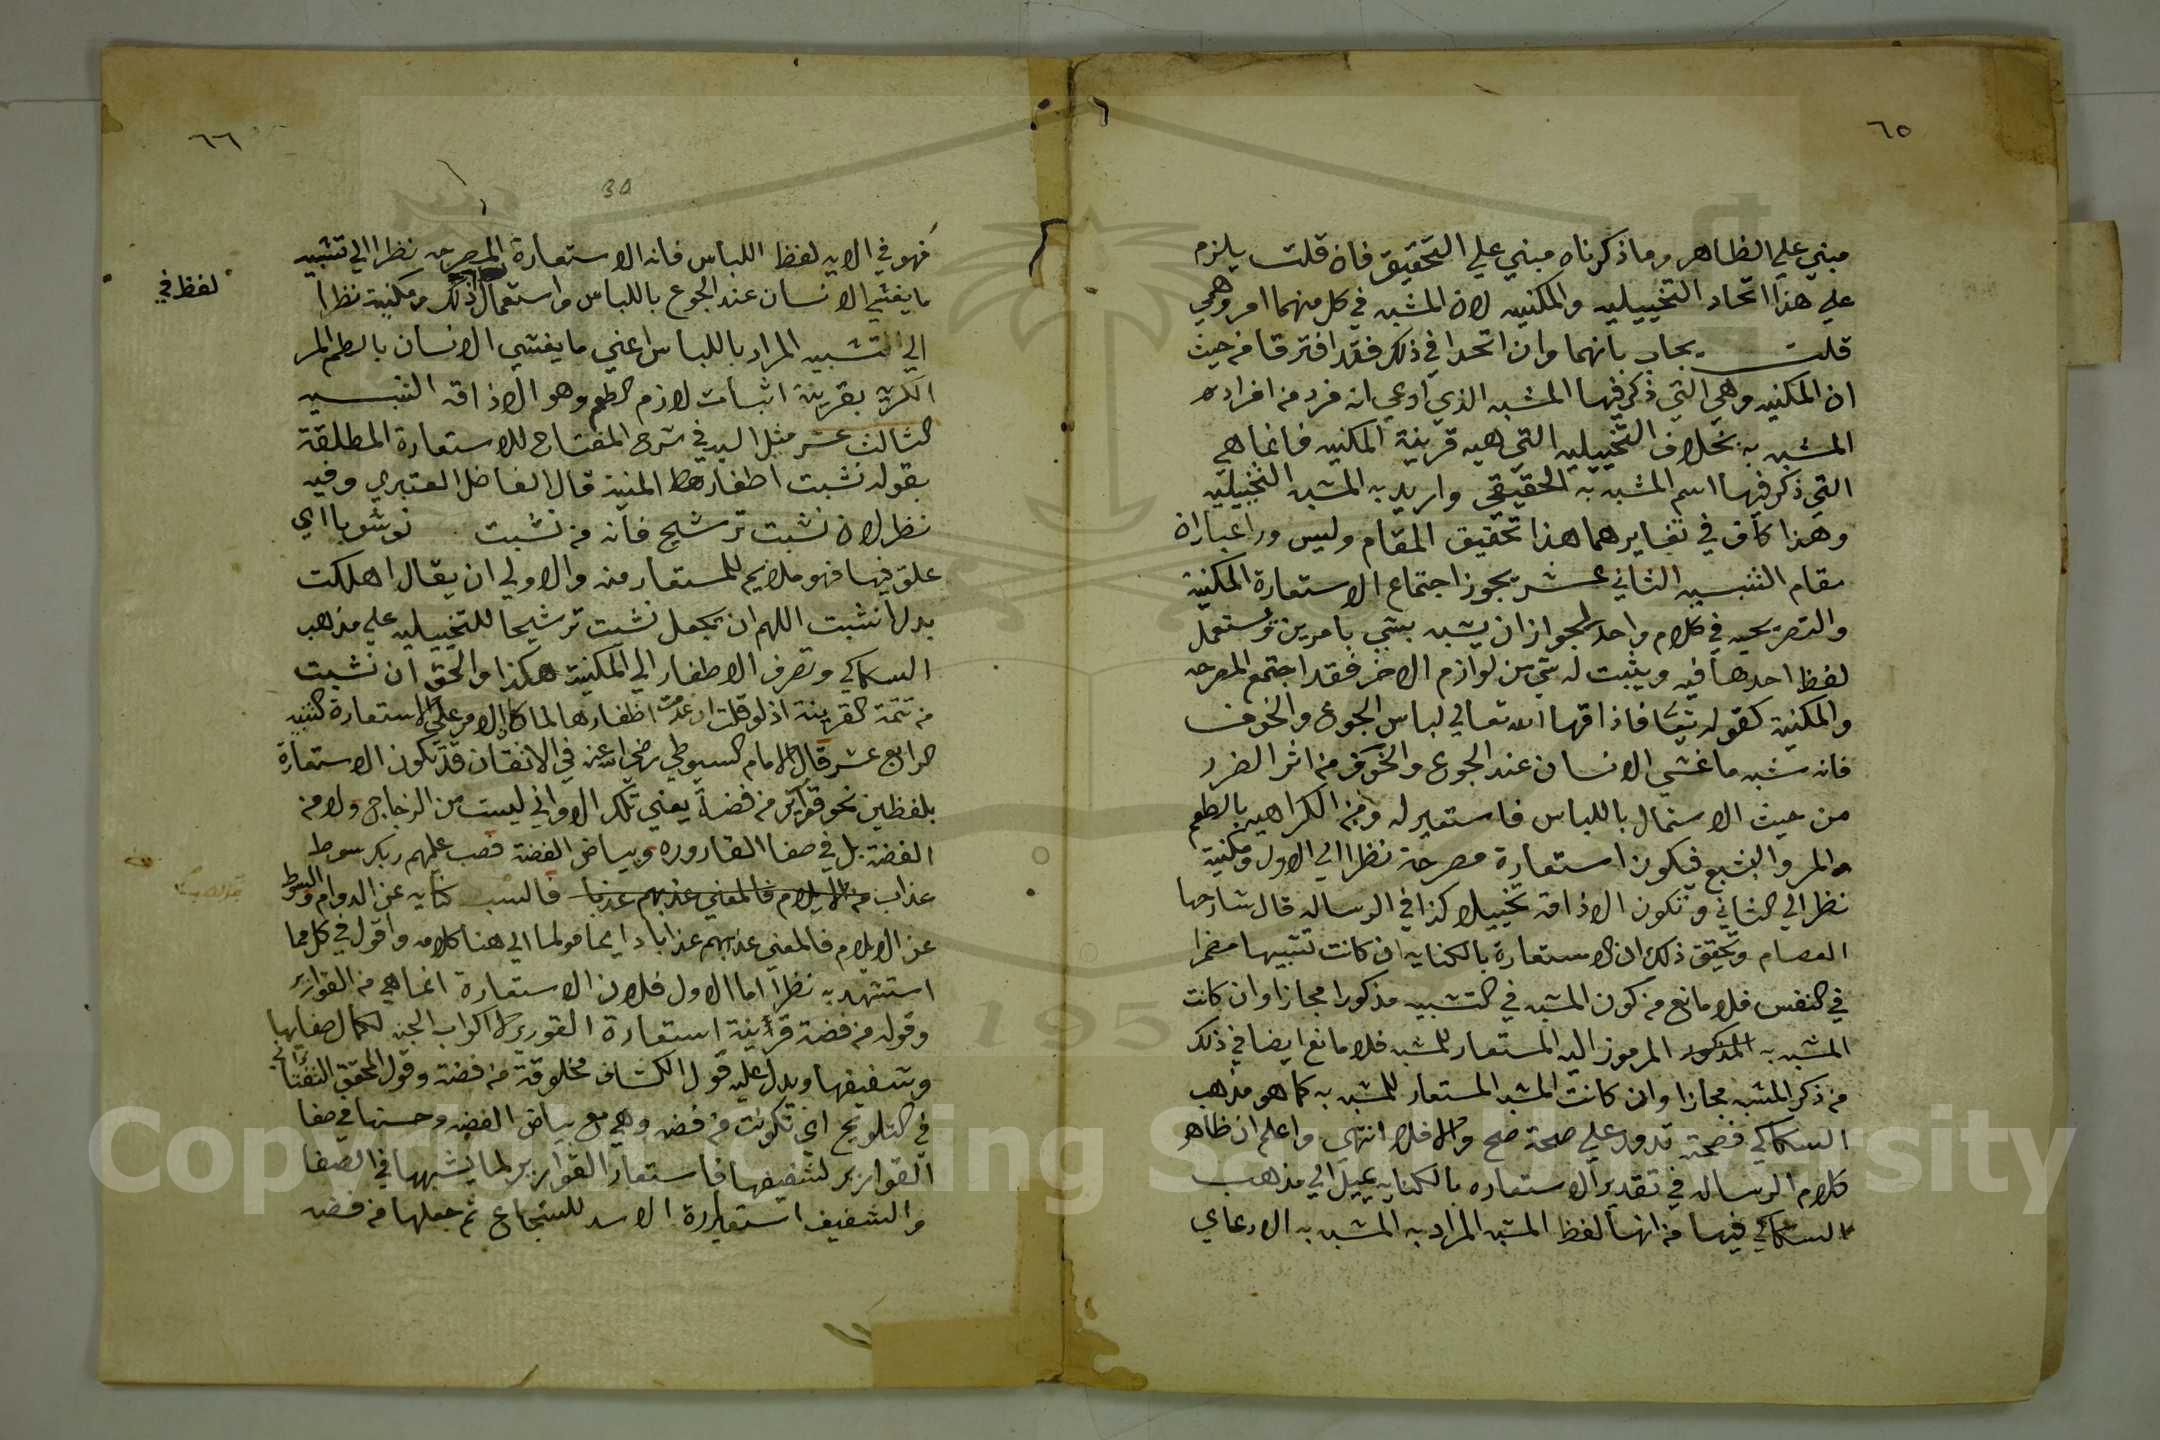 ٦٥
مبني علي الظاهر وما ذكرناه مبني علي التحقيق فان قلت يلزم
علي هذا اتحاد التخييليه والمكنيه لان المشبه في كل منهما امر وهمي
قلت يجاب بانهما وان اتحدا في ذلك فقد افترقا من حيث
ان المكنيه وهي التي ذكر فيها المشبه الذي ادعي انه فرد من افراده
المشبه به بخلاف التخييليه التي هيه قرينة المكنيه فانما هي
التي ذكر فيها اسم المشبه به الحقيقي واريد به المشبه التخييليه
وهذا كاف في تغايرهما هذا تحقيق المقام وليس ورا عباران
مقام التنبيه الثاني عشر يجوز اجتماع الاستعارة المكنية
والتصريحيه في كلام واحد لجواز ان يشبه بشي بامرين ويستعمل
لفظ احدها فيه ويثبت له شي من لوازم الاخر فقد اجتمع المصرحه
والمكنية كقوله تعا فاذاقها الله تعالي لباس الجوع والخوف
فانه شبه ما غشي الانسان عند الجوع والخوف من اثر الضرر
من حيث الاشتمال باللباس فاستعير له ومن الكراهيه بالطعم
المر والبشع فيكون استعارة مصرحة نظرا الي الاول ومكنية
نظر الي الثاني وتكون الاذاقة تخييلا كذا في الرساله قال شارحها
العصام وتحقيق ذلك ان الاستعارة بالكنايه ان كانت تشبيها مضمرا
في النفس فلا مانع من كون المشبه في التشبيه مذكورا مجازا وان كانت
المشبه به المذكور المرموز اليه المستعار للمشبه فلا مانع ايضا في ذلك
من ذكر المشبه مجازا وان كانت المشبه المستعار للمشبه به كما هو مذهب
السكاكي فصحته تدور علي صحة صح والا فلا انتهي واعلم ان ظاهر
كلام الرساله في تقدير الاستعاره بالكنايه يميل الي مذهب
السكاكي فيها من انها لفظ المشبه المراد به المشبه به الادعاي
٦٦
35
فهو في الايه لفظ اللباس فانه الاستعارة المصرحه نظرا الي تشبيه
ما يغشي الانسان عند الجوع باللباس واستعمال ذلك ومكنية نظرا
لفظ في
الي التشبيه المراد باللباس اعني ما يغشي الانسان بالطعم المر
الكريه بقرينة اثبات لازم الطعم وهو الاذاقه التنبيه
الثالث عشر مثل السيد في شرح المفتاح للاستعارة المطلقة
بقوله نشبت اظفار المنية قال الفاضل العنبري وفيه
نظر لان نشبت ترشيح فانه من نشبت نوشوبا اي
علق فيها فهو ملايم للمستعار منه والاولي ان يقال اهلكت
بدل نشبت اللهم ان يجعل نشبت ترشيحا للتخييليه علي مذهب
السكاكي وتصرف الاظفار الي المكنية هكذا والحق ان نشبت
من تتمة القرينة اذ لو قلت ان عدمت اظفارها لما كان الامر علي الاستعارة التنبيه
الرابع عشر قال الامام السيوطي رضي الله عنه في الاتقان قد تكون الاستعارة
بلفظين نحو قوارير من فضة يعني تلك الاواني ليست من الزجاج ولا من
الفضة بل في صفا القاروره وبياض الفضة فصب عليهم ربك سوط
عذاب من الايلام فالمعني عذبهم عذبا فالصب كنايه عن الدوام والسوط
عن الايلام فالمعني عذبهم عذابا دايما مولما الي هنا كلامه واقول في كل مما
استشهد به نظرا اما الاول فلان الاستعارة انما هي من القوارير
وقوله من فضة قرينة استعارة القورير لاكواب الجنه لكمال صفايها
وشفيفها ويدل عليه قول الكشاف مخلوقة من فضة وقول المحقق التفتازاني
في التلويح اي تكونت من فضه وهي مع بياض الفضه وحسنها في صفا
القوارير لشفيفها فاستعار القوارير لما يشبهها في الصفا
والشفيف استعارة الاسد للشجاع ثم جعلها من فضه
Copyright © King Saud University
195